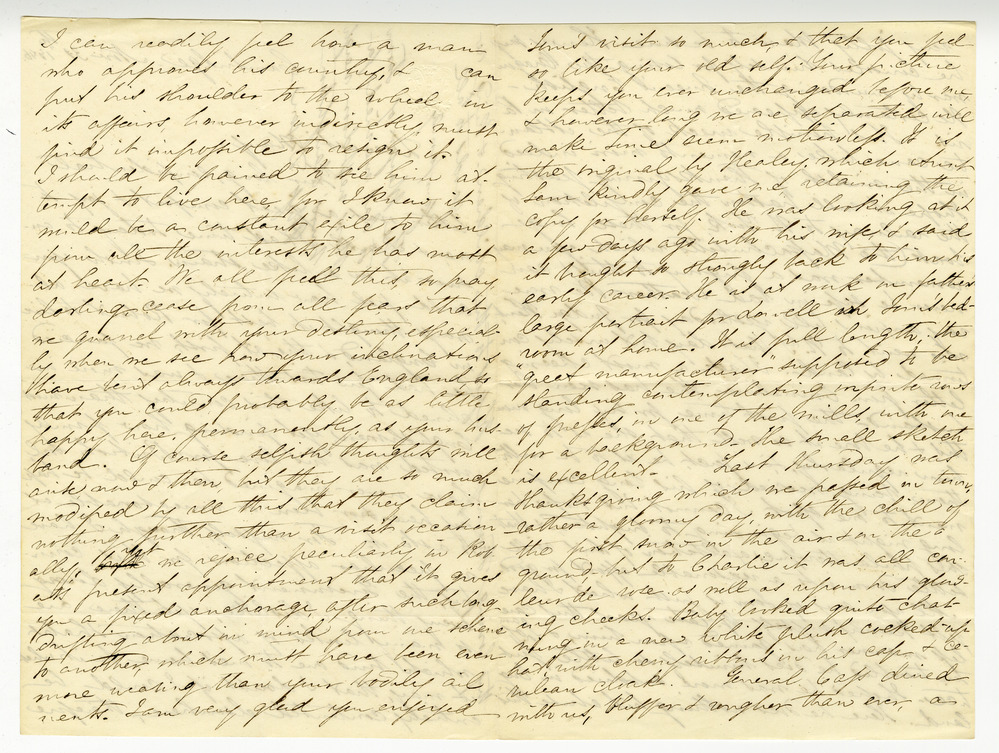 I can readily feel how a man
who approves his country, & can
put his shoulder to the wheel in
its affairs, however indirectly, must
find it impossible to resign it.
I should be pained to see him at-
tempt to live here, for I know it
would be a constant exile to him
from all the interests he has most
at heart. We all feel this, so pray,
darling, cease from all fears that
we quarrel with your destiny, especial-
ly when we see how your inclinations
have bent always towards England, so
that you could probably be as little
happy here, permanently, as your hus-
band. Of course selfish thoughts will
arise now & then but they are so much
modified by all this that they claim
nothing further than a visit occasion
ally, but we rejoice peculiarly in Rob
at's present appointment that it gives
you a fixed anchorage, after such long
drifting about in mind from one scheme
to another, which must have been even
more wearing than your bodily ail
ments. I am very glad you enjoyed
Tom's visit so much, & that you feel
so like your old self. Your picture
keeps you ever unchanged before me,
& however long we are separated will
make time seem motionless. It is
the original by Healey, which Aunt
Sam kindly gave me, retaining the
copy for herself. He was looking at it
a few days ago with his wife, & said
it brought so strongly back to him his
early career. He is at work on father's
large portrait for Lowell, Tom's bed-
room at home. It is full length, the
"great manufacturer" supposed to be
standing contemplating infinite rows
of presses, in one of the mills, with one
for a background. The small sketch
is excellent. Last Thursday was
Thanksgiving which we passed in town,
rather a gloomy day, with the chill of
the first snow in the air & on the
ground but to Charlie it was all cou-
leur de rose as well as upon his glow-
ing cheeks. Baby looked quite char-
ming in a new white plush cocked-up
hat, with cherry ribbons in his cap & ce-
rulean cloak. General Cass dined
with us, bluffer & rougher than ever, a